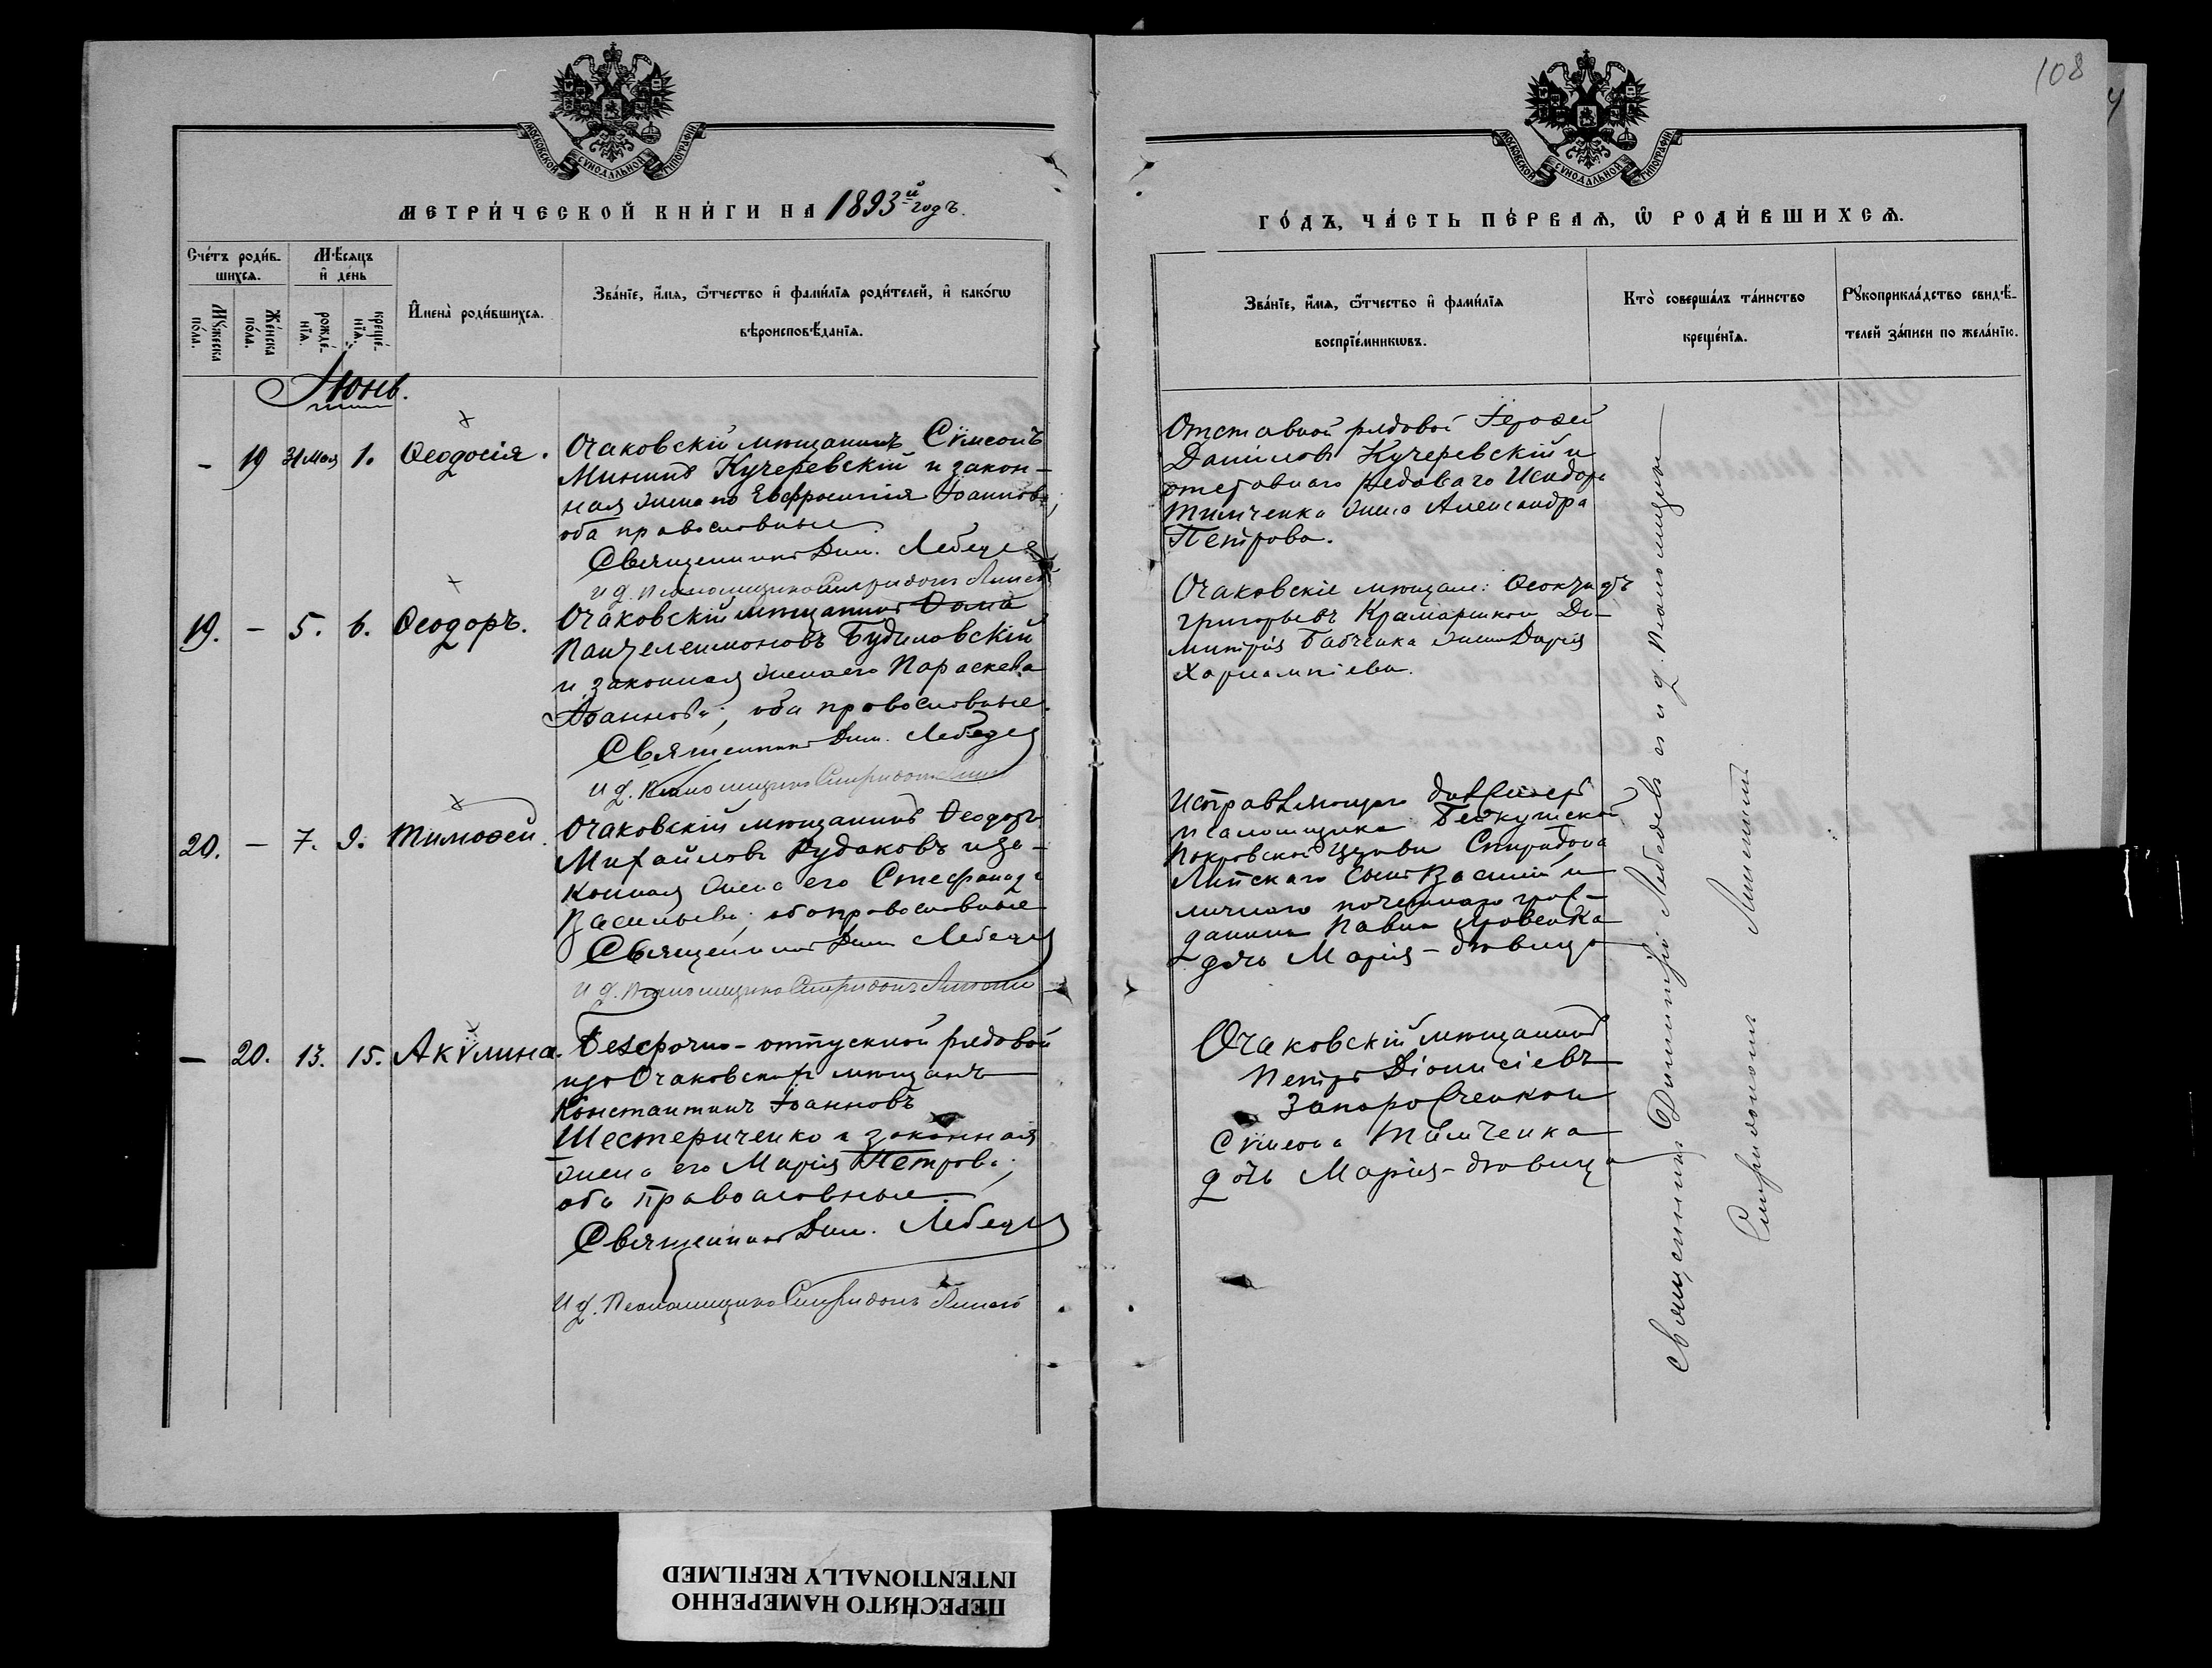 108
МОСКОВСКОЙ СѴНОДАЛЬНОЙ ТИПОГРАФІИ
МЕТРИ́ЧЕСКОЙ КНИ́ГИ НА 1893й годъ.
Сче́тъ роди́в-
шихсѧ.
Мѣ́сяцъ
и҆ де́нь
Мꙋ́жеска
по́ла.
Же́нска
по́ла.
рожде́-
нїѧ.
креще́-
нїѧ.
И҆мена̀ роди́вшихсѧ.
Зва́нїе, и҆́мѧ, ѻ҆́тчество и҆ фами́лїѧ роди́телей, и҆ како́гѡ
вѣроисповѣ́данїѧ.
Іюнь.
- 19 31 Мая 1. Ѳеодосія.
Очаковскій мѣщанинъ Сѵмеонъ
Мининъ Кучеревскій и закон-
ная жена его Евфросинія Іоаннова,
оба православные
Священникъ Дим. Лебедев
И д. Псаломщика Спиридонъ Липскій
19. - 5. 6. Ѳеодоръ.
Очаковскій мѣщанинъ Ѳома
Пантелеимоновъ Будиловскій
и законная жена его Параскева
Іоаннова; оба православные.
Священникъ Дим. Лебедев
И д. Псаломщика Спиридонъ Липскій
20. - 7. 9. Тимоѳей.
Очаковскій мѣщанинъ Ѳеодоръ
Михайловъ Рудаковъ и за-
конная жена его Стефанида
Васильева; оба православные
Священникъ Дим. Лебедев
И д. Псаломщика Спиридонъ Липскій
- 20. 13. 15. Акѵлина.
Безсрочно-отпускной рядовой
изъ Очаковскихъ мѣщанъ
Константинъ Іоанновъ
Шестериченко и законная
жена его Марія Петрова;
оба православные.
Священникъ Дим. Лебедев
И д. Псаломщика Спиридонъ Липскій
МОСКОВСКОЙ СѴНОДАЛЬНОЙ ТИПОГРАФІИ
ГО́ДЪ, ЧА́СТЬ ПЕ́РВАѦ, Ѡ҆ РОДИ́ВШИХСѦ.
Зва́нїе, и҆́мѧ, ѻ҆́тчество и҆ фами́лїѧ
воспрїе́мникѡвъ.
Кто̀ соверша́лъ та́инство
креще́нїѧ.
Рꙋкоприкла́дство свидѣ́-
телей за́писи по жела́нїю.
Отставной рядовой Іероѳей
Даниловъ Кучеревскій и
отставнаго рядоваго Исидора
Тимченка жена Александра
Петрова.
Очаковскіе мѣщане:
Григорьевъ Крамаренко и Ди-
митрія Бабченка жена Дарія
Харлампіева.
Исправляющаго должность
псаломщика Бейкушской
Покровской Церкви Спиридона
Липскаго сынъ Василій и
личнаго почетнаго граж-
данина Павла Яровенка
дочь Марія - дѣвица
Очаковскій мѣщанинъ
Петръ Діонисіевъ
Запорожченко и
Сѵмеона Тимченка
дочь Марія - дѣвица
Священникъ Димитрій Лебедевъ съ и. д. Псаломщика
Спиридономъ Липскимъ
ПЕРЕСНЯТО НАМЕРЕННО
INTENTIONALLY REFILMED